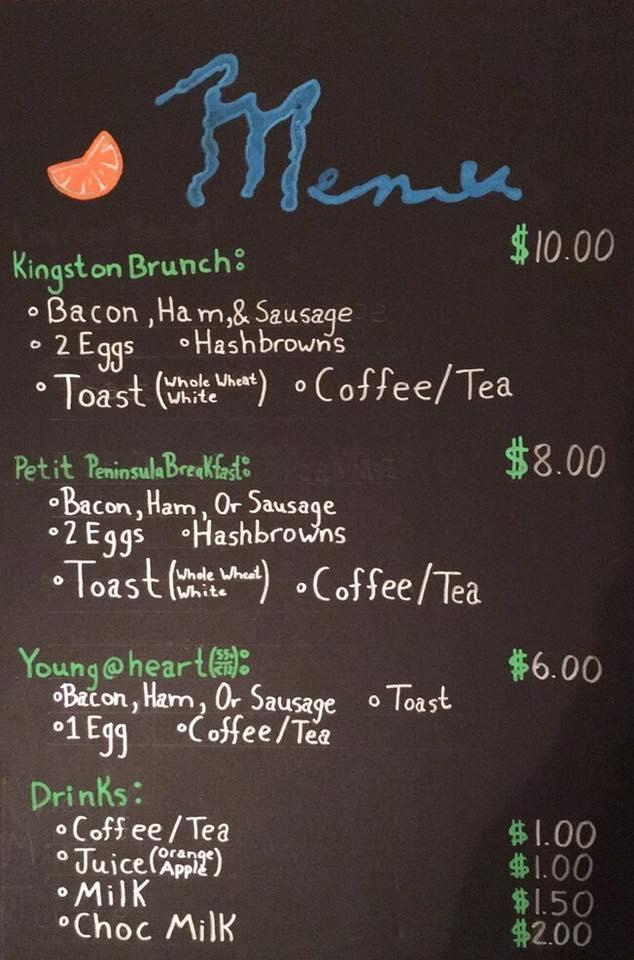 Menu
Kingston Brunch: $10.00
Bacon, Ham, & Sausage
2 Eggs Hashbrowns
Toast (Whole Wheat White) Coffee/Tea
Petit Peninsula Breakfast: $8.00
Bacon, Ham, Or Sausage
2 Eggs Hashbrowns
Toast (Whole Wheat White) Coffee/Tea
Young@heart(55+ <12): $6.00
Bacon, Ham, Or Sausage Toast
1 Egg Coffee/Tea
Drinks:
Coffee/Tea $1.00
Juice (Orange Apple) $1.00
Milk $1.50
Choc Milk $2.00